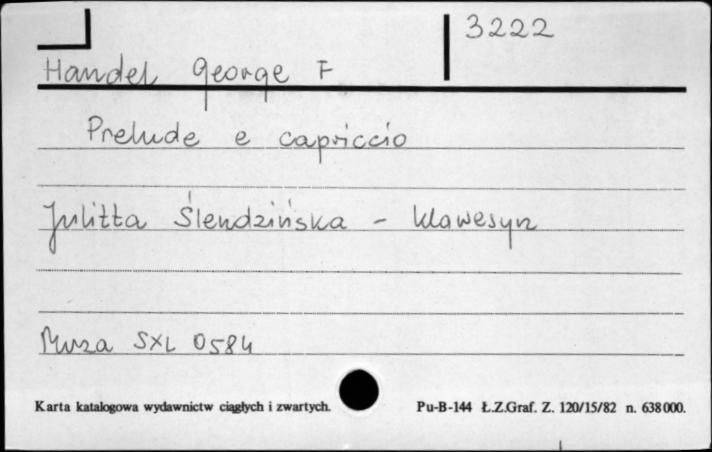 3222
Handel George F
Prelude e capriccio
Julitta Ślendzińska - klawesyn
Muza SXL 0584
Karta katalogowa wydawnictw ciągłych i zwartych. Pu-B-144 Ł.Z.Graf. Z. 120/15/82 n. 638000.